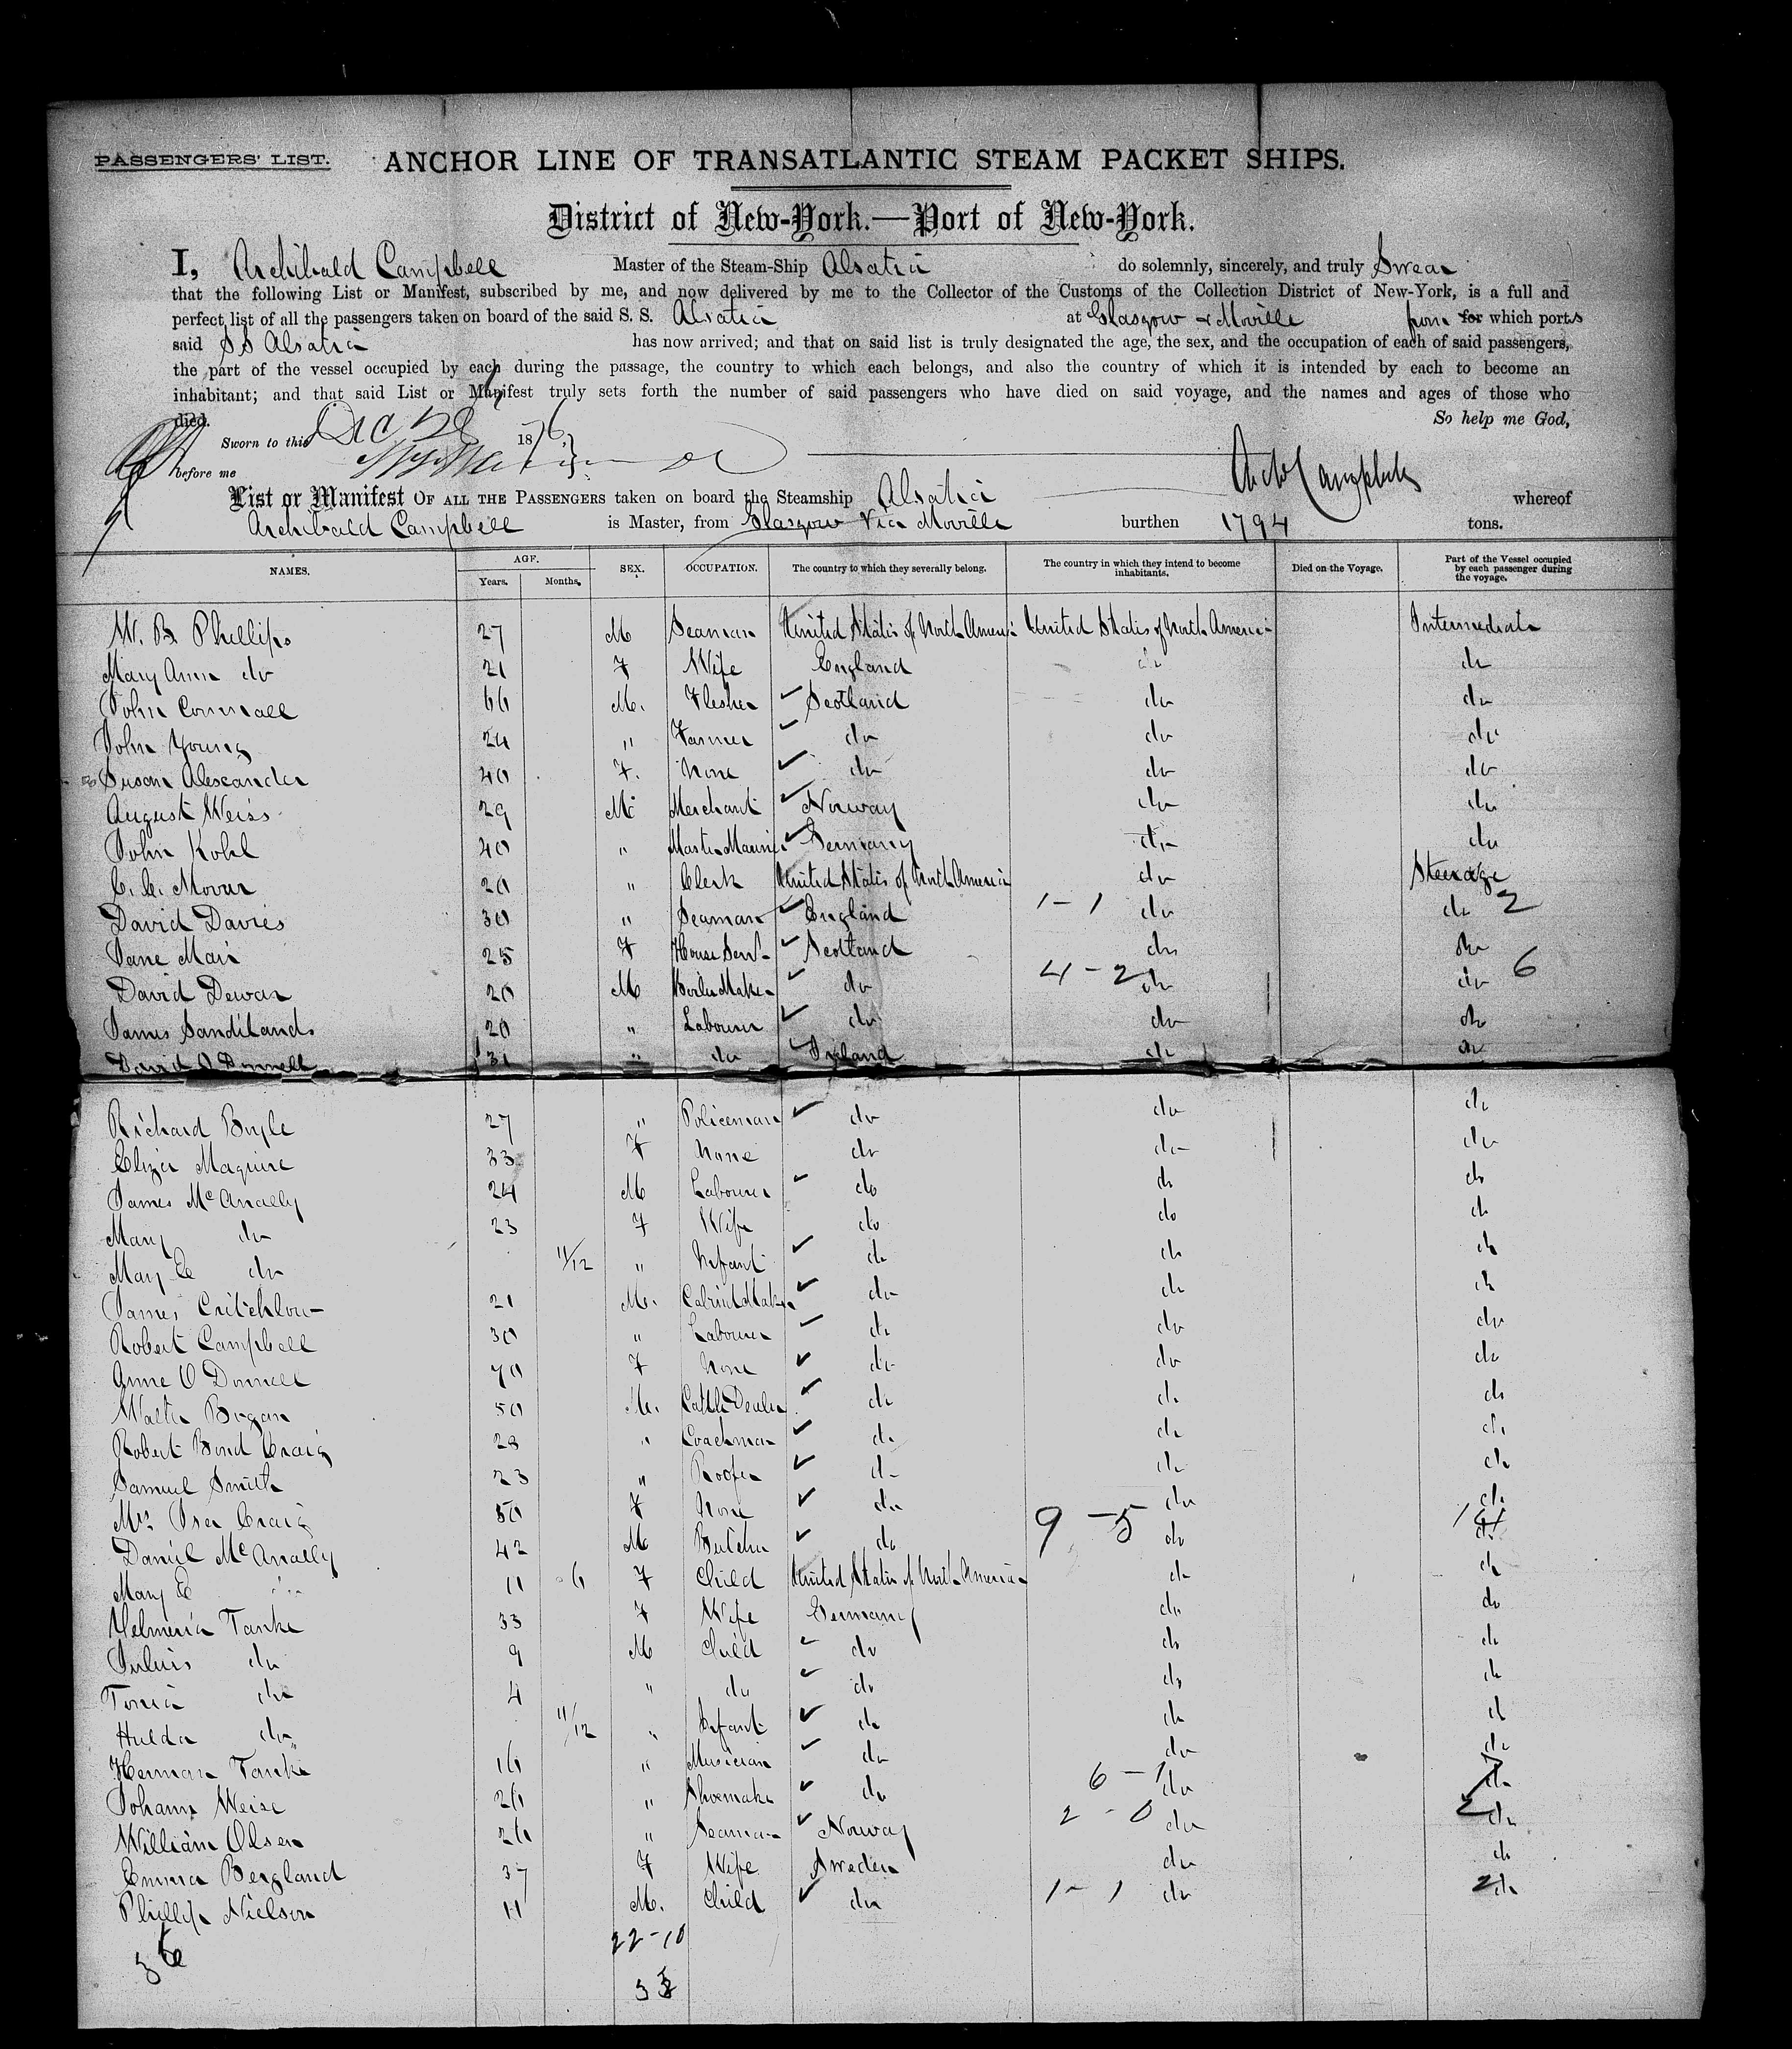 PASSENGERS' LIST. ANCHOR LINE OF TRANSATLANTIC STEAM PACKET SHIPS.
District of New-York.—Port of New-York.
I, Archibald Campbell Master of the Steam-Ship Alsatia do solemnly, sincerely, and truly Swear
that the following List or Manifest, subscribed by me, and now delivered by me to the Collector of the Customs of the Collection District of New-York, is a full and
perfect list of all the passengers taken on board of the said S. S. Alsatia at Glasgow & Moville from for which ports
said SS Alsatia has now arrived; and that on said list is truly designated the age, the sex, and the occupation of each of said passengers,
the part of the vessel occupied by each during the passage, the country to which each belongs, and also the country of which it is intended by each to become an
inhabitant; and that said List or Manifest truly sets forth the number of said passengers who have died on said voyage, and the names and ages of those who
died. So help me God,
Sworn to this Dec 1876
before me
Arch Campbell
List or Manifest OF ALL THE PASSENGERS taken on board the Steamship Alsatia whereof
Archibald Campbell is Master, from Glasgow via Moville burthen 1794 tons.
NAMES. AGE. Years. Months. SEX. OCCUPATION. The country to which they severally belong. The country in which they intend to become inhabitants. Died on the Voyage. Part of the Vessel occupied by each passenger during the voyage.
W. B. Phillips 27 M Seaman United States of North America United States of North America Intermediate
Mary Ann do 21 F Wife England do do
John Connall 66 M. Flesher Scotland do do
John Young 24 " Farmer do do do
Susan Alexander 40 F. None do do do
August Weiss 29 M Merchant Norway do do
John Kohl 40 " Master Mariner Germany do do
C. C. 20 " Clerk United States of North America do Steerage
David Davies 30 " Seaman England 1-1 do do 2
Jane Mair 25 F House Servt Scotland do do
David Dewar 20 M Boiler Maker do 4-2 do do 6
James Sandilands 20 " Labourer do do do
David O Donnell 31 " do Ireland do do
Richard Boyle 27 " Policeman do do do
Eliza Maguire 33 F None do do do
James McAnally 24 M Labourer do do do
Mary do 23 F Wife do do do
Mary E do 11/12 " Infant do do do
James Critchlow 21 M. Cabinet Maker do do do
Robert Campbell 30 " Labourer do do do
Anne O Donnell 70 F None do do do
Walter Bogan 50 M. Cattle Dealer do do do
Robert Bond Craig 28 " Coachman do do do
Samuel Smith 23 " Roofer do do do
Mrs Craig 50 F None do do do
Daniel McAnally 42 M Butcher do 9-5 do 14 do
Mary E do 11 6 F Child United States of North America do do
Tanke 33 F Wife Germany do do
Julius do 9 M Child do do do
do 4 " do do do do
Hulda do 11/12 " Infant do do do
Herman Tanke 16 " Musician do do do
Johann Weise 26 " Shoemaker do 6-1 do 7 do
William Olsen 26 " Seaman Norway 2-0 do 2 do
Emma Bergland 37 F Wife Sweden do do
Phillip Nielson 11 M. Child do 1-1 do 2 do
22-10